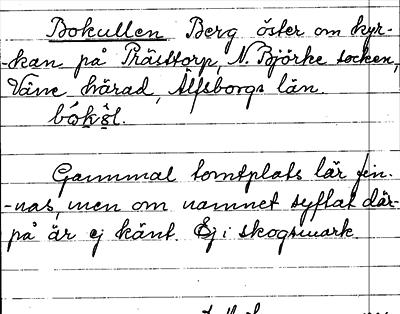 Bokullen Berg öster om kyr-
-kan på Prästtorp, N. Björke socken,
Väne härad, Älfsborgs län.
Gammal tomtplats lär fin-
-nas, men om namnet syftat där-
på är ej känt. Ej i skogsmark.